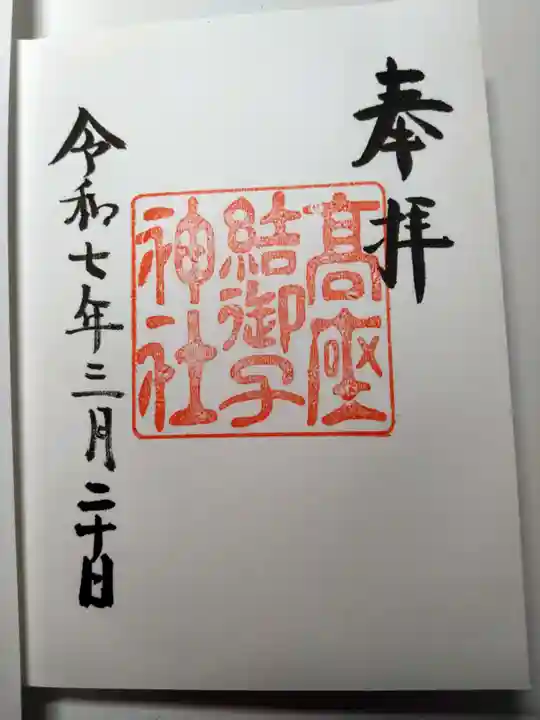 奉拝
髙座
結御子
神社
令和七年三月二十日